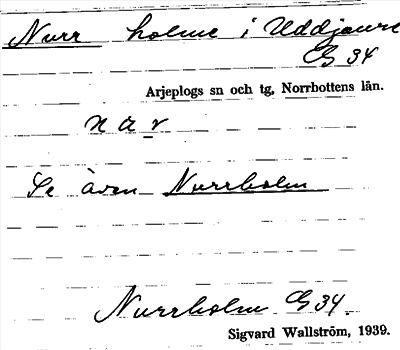 Nurr holme i Uddjaure
G 34
Arjeplogs sn och tg, Norrbottens län.
n a r
Se även Nurrholm
Nurrholm G 34.
Sigvard Wallström, 1939.